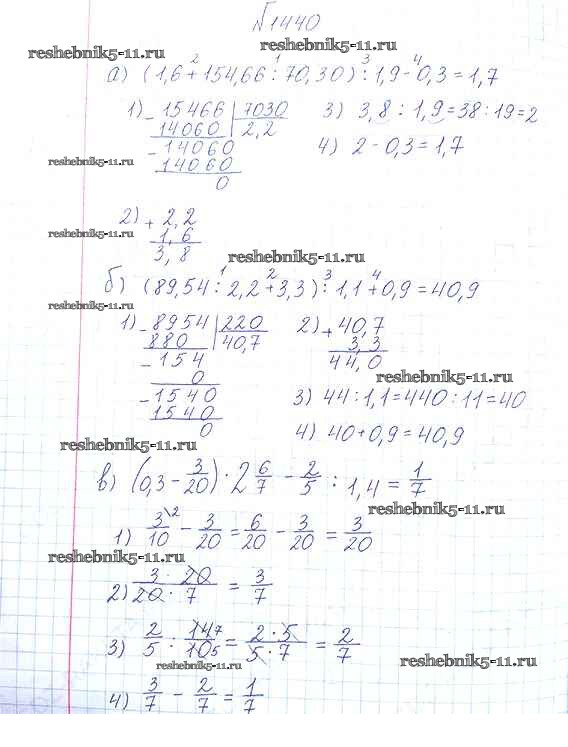 №1440
reshebnik5-11.ru reshebnik5-11.ru
а) (1,6 + 154,66 : 70,30) : 1,9 - 0,3 = 1,7
2 1 3 4
1) - 15466 | 7030
14060 | 2,2
- 14060
14060
0
3) 3,8 : 1,9 = 38 : 19 = 2
4) 2 - 0,3 = 1,7
reshebnik5-11.ru
2) + 2,2
1,6
3,8
reshebnik5-11.ru
reshebnik5-11.ru
б) (89,54 : 2,2 + 3,3) : 1,1 + 0,9 = 40,9
1 2 3 4
reshebnik5-11.ru
1) - 8954 | 220
880 | 40,7
- 154
0
- 1540
1540
0
2) + 40,7
3,3
44,0
reshebnik5-11.ru
3) 44 : 1,1 = 440 : 11 = 40
4) 40 + 0,9 = 40,9
reshebnik5-11.ru
в) (0,3 - 3/20) · 2 6/7 - 2/5 : 1,4 = 1/7
reshebnik5-11.ru
1) 3\2/10 - 3/20 = 6/20 - 3/20 = 3/20
reshebnik5-11.ru
2) 3 · 20/20 · 7 = 3/7
3) 2/5 : 14 7/10 5 = 2 · 5/5 · 7 = 2/7
reshebnik5-11.ru reshebnik5-11.ru
4) 3/7 - 2/7 = 1/7